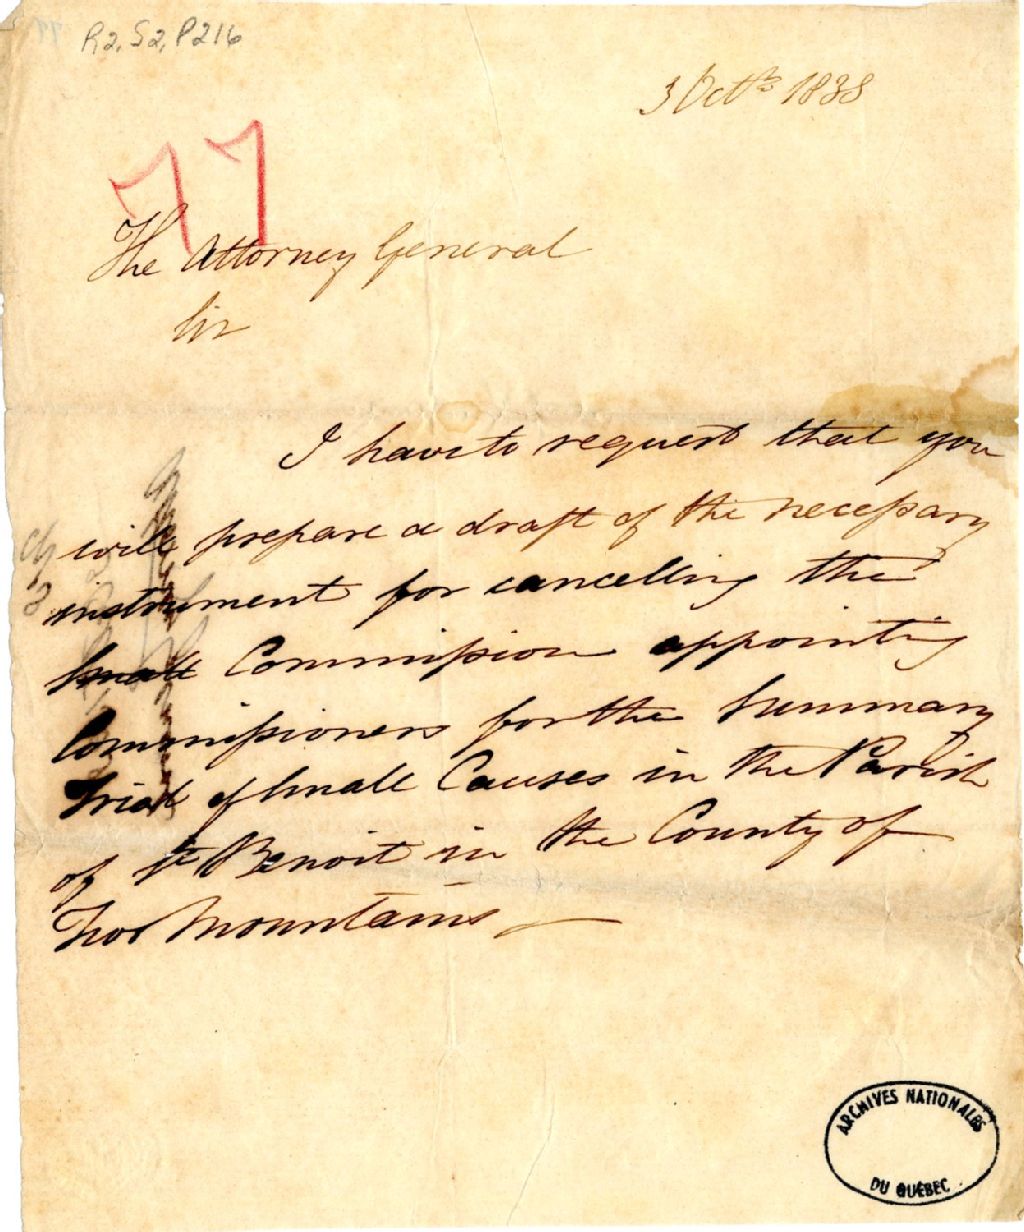 R2, S2, P216
3 Octb 1838
77
The Attorney General
Sir
I have to request that you
will prepare a draft of the necessary
instrument for cancelling the
Small Commission appointing
Commissioners for the Summary
Trial of Small Causes in the Parish
of St Benoit in the County of
Two Mountains
ARCHIVES NATIONALES
DU QUÉBEC